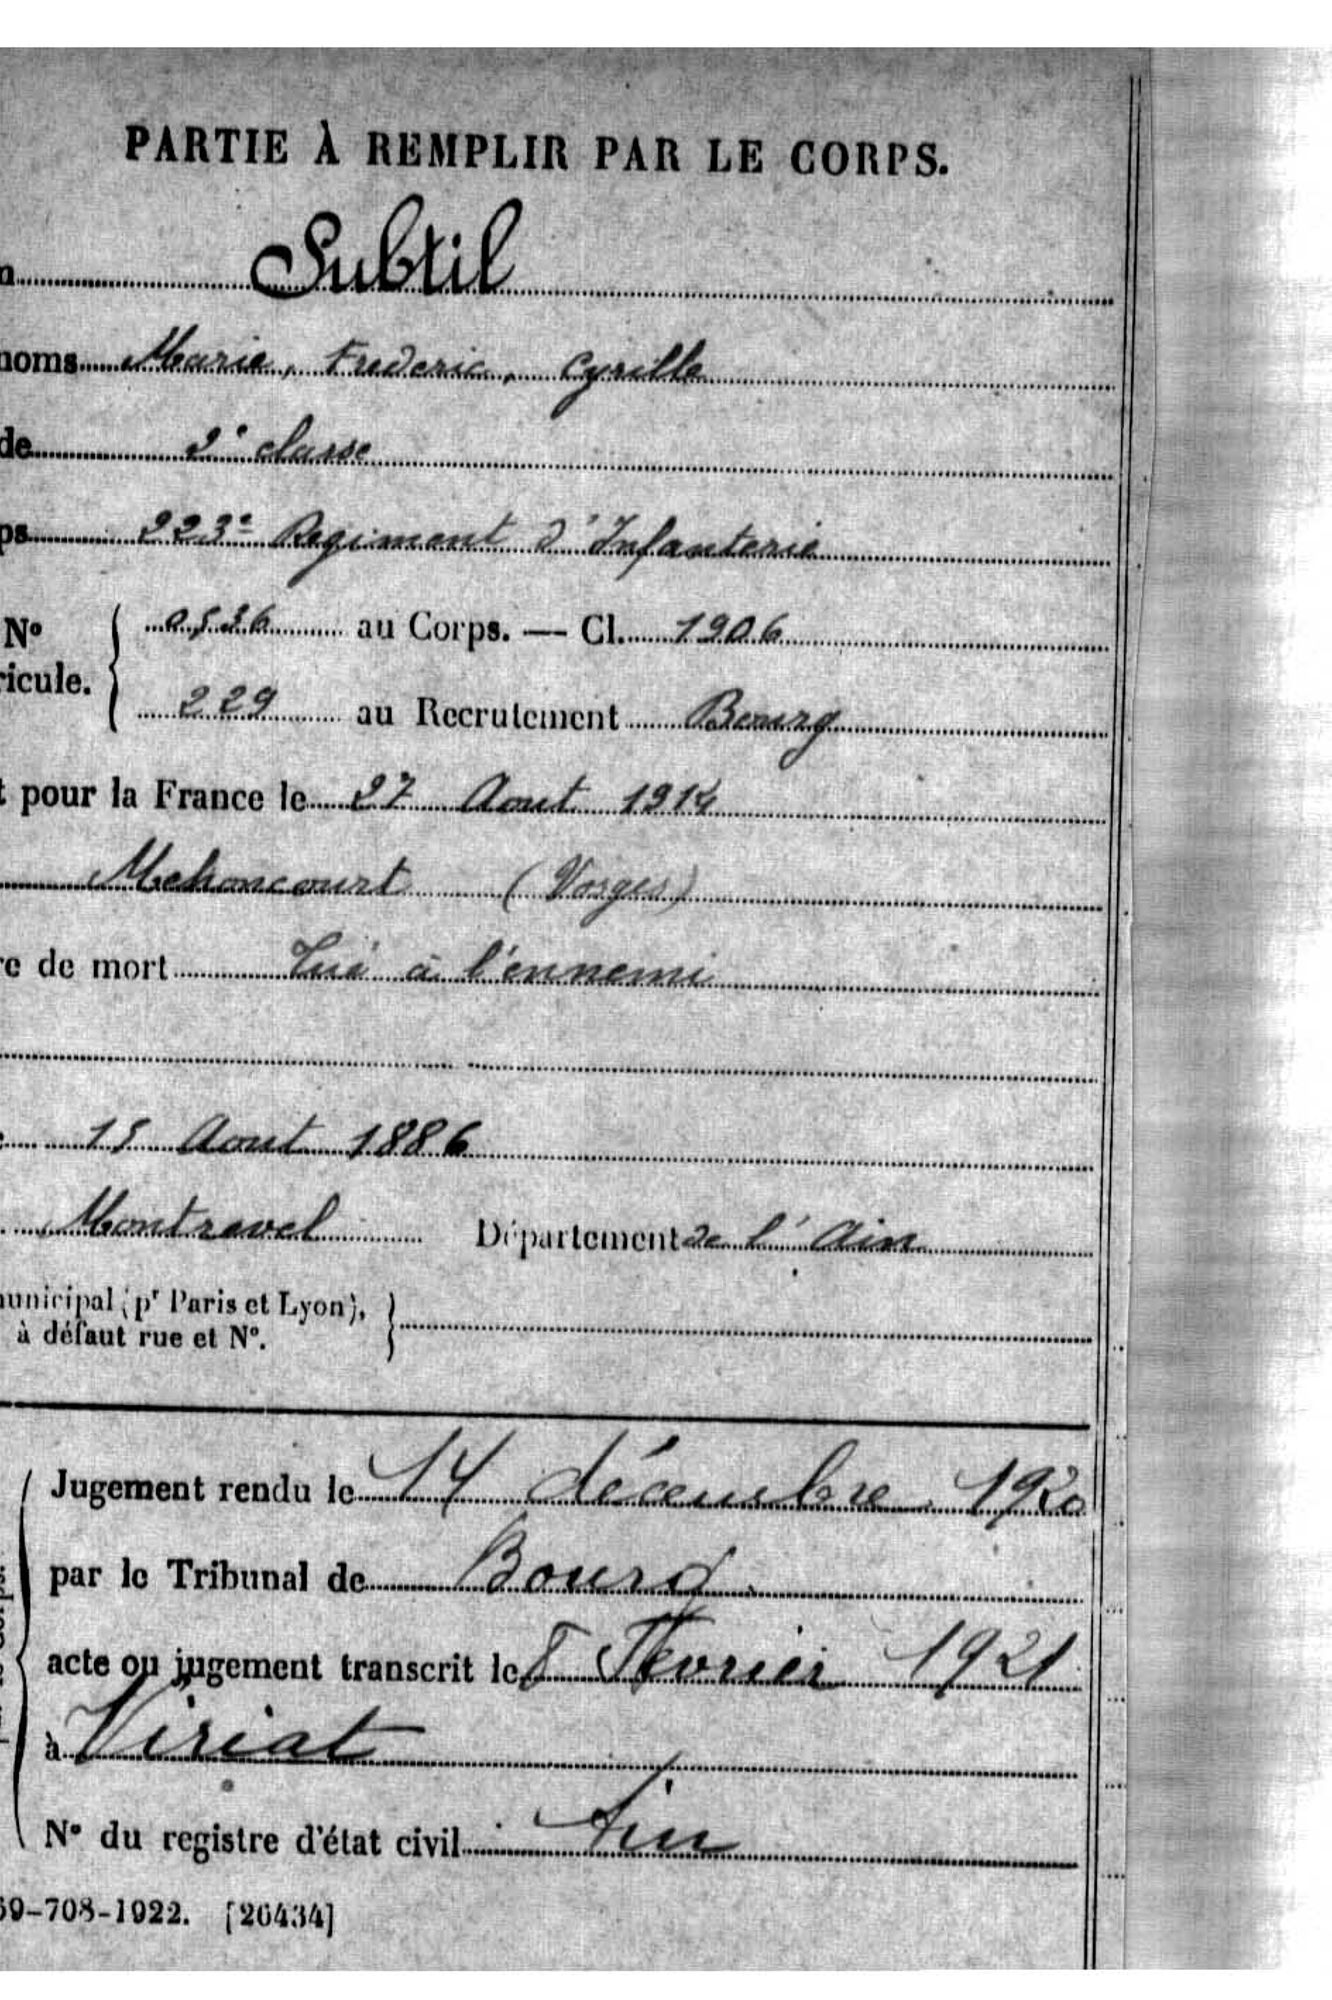 PARTIE À REMPLIR PAR LE CORPS.
Subtil
noms Marie, Frederic, Cyrille
de 2e classe
ps 223e Regiment d'Infanterie
No 0536 au Corps. — Cl. 1906
ricule. 229 au Recrutement Bourg
t pour la France le 27 Aout 1914
Mehoncourt (Vosges)
re de mort Tué à l'ennemi
15 Aout 1886
Montrevel Département de l'Ain
municipal (pr Paris et Lyon),
à défaut rue et No.
Jugement rendu le 14 décembre 1920
par le Tribunal de Bourg
acte ou jugement transcrit le 8 Février 1921
à Viriat
No du registre d'état civil Ain
69-708-1922. [26434]